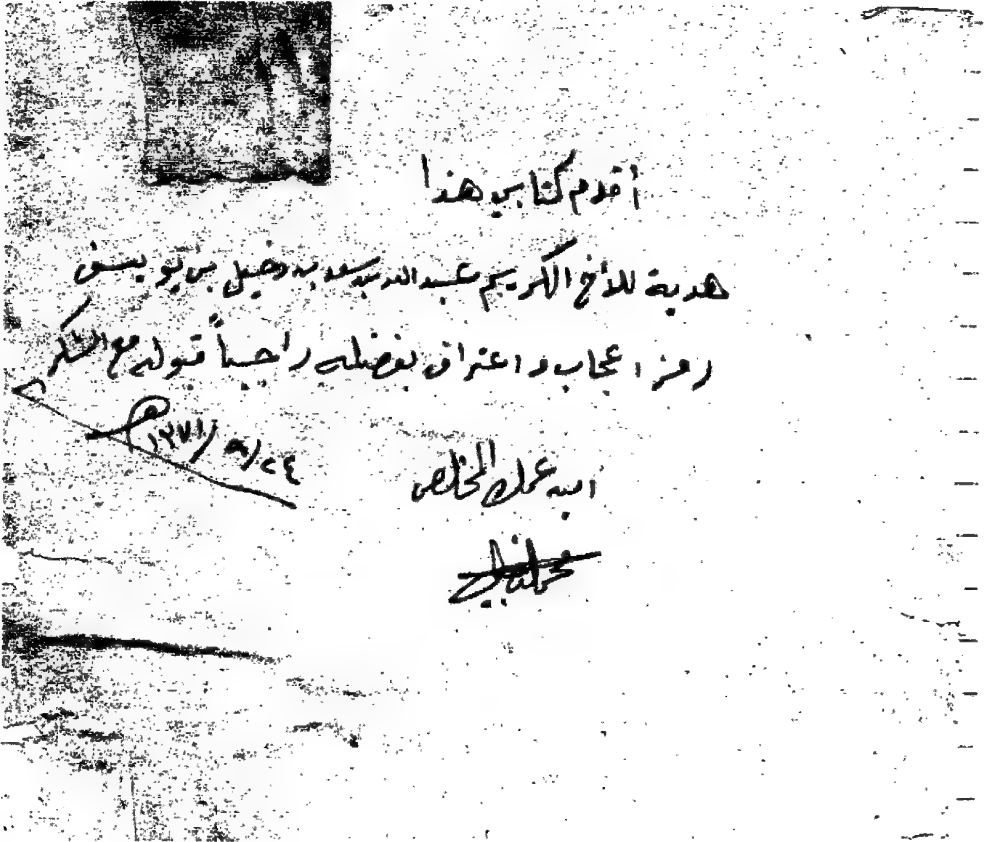 أقدم كتابي هذا
هدية للأخ الكريم عبد الله بن سعد بن دخيل بن يوسف
رمز اعجاب واعتراف بفضله راجياً قبوله مع الشكر
ابن عمك المخلص
٢٤/٨/١٣٧١هـ